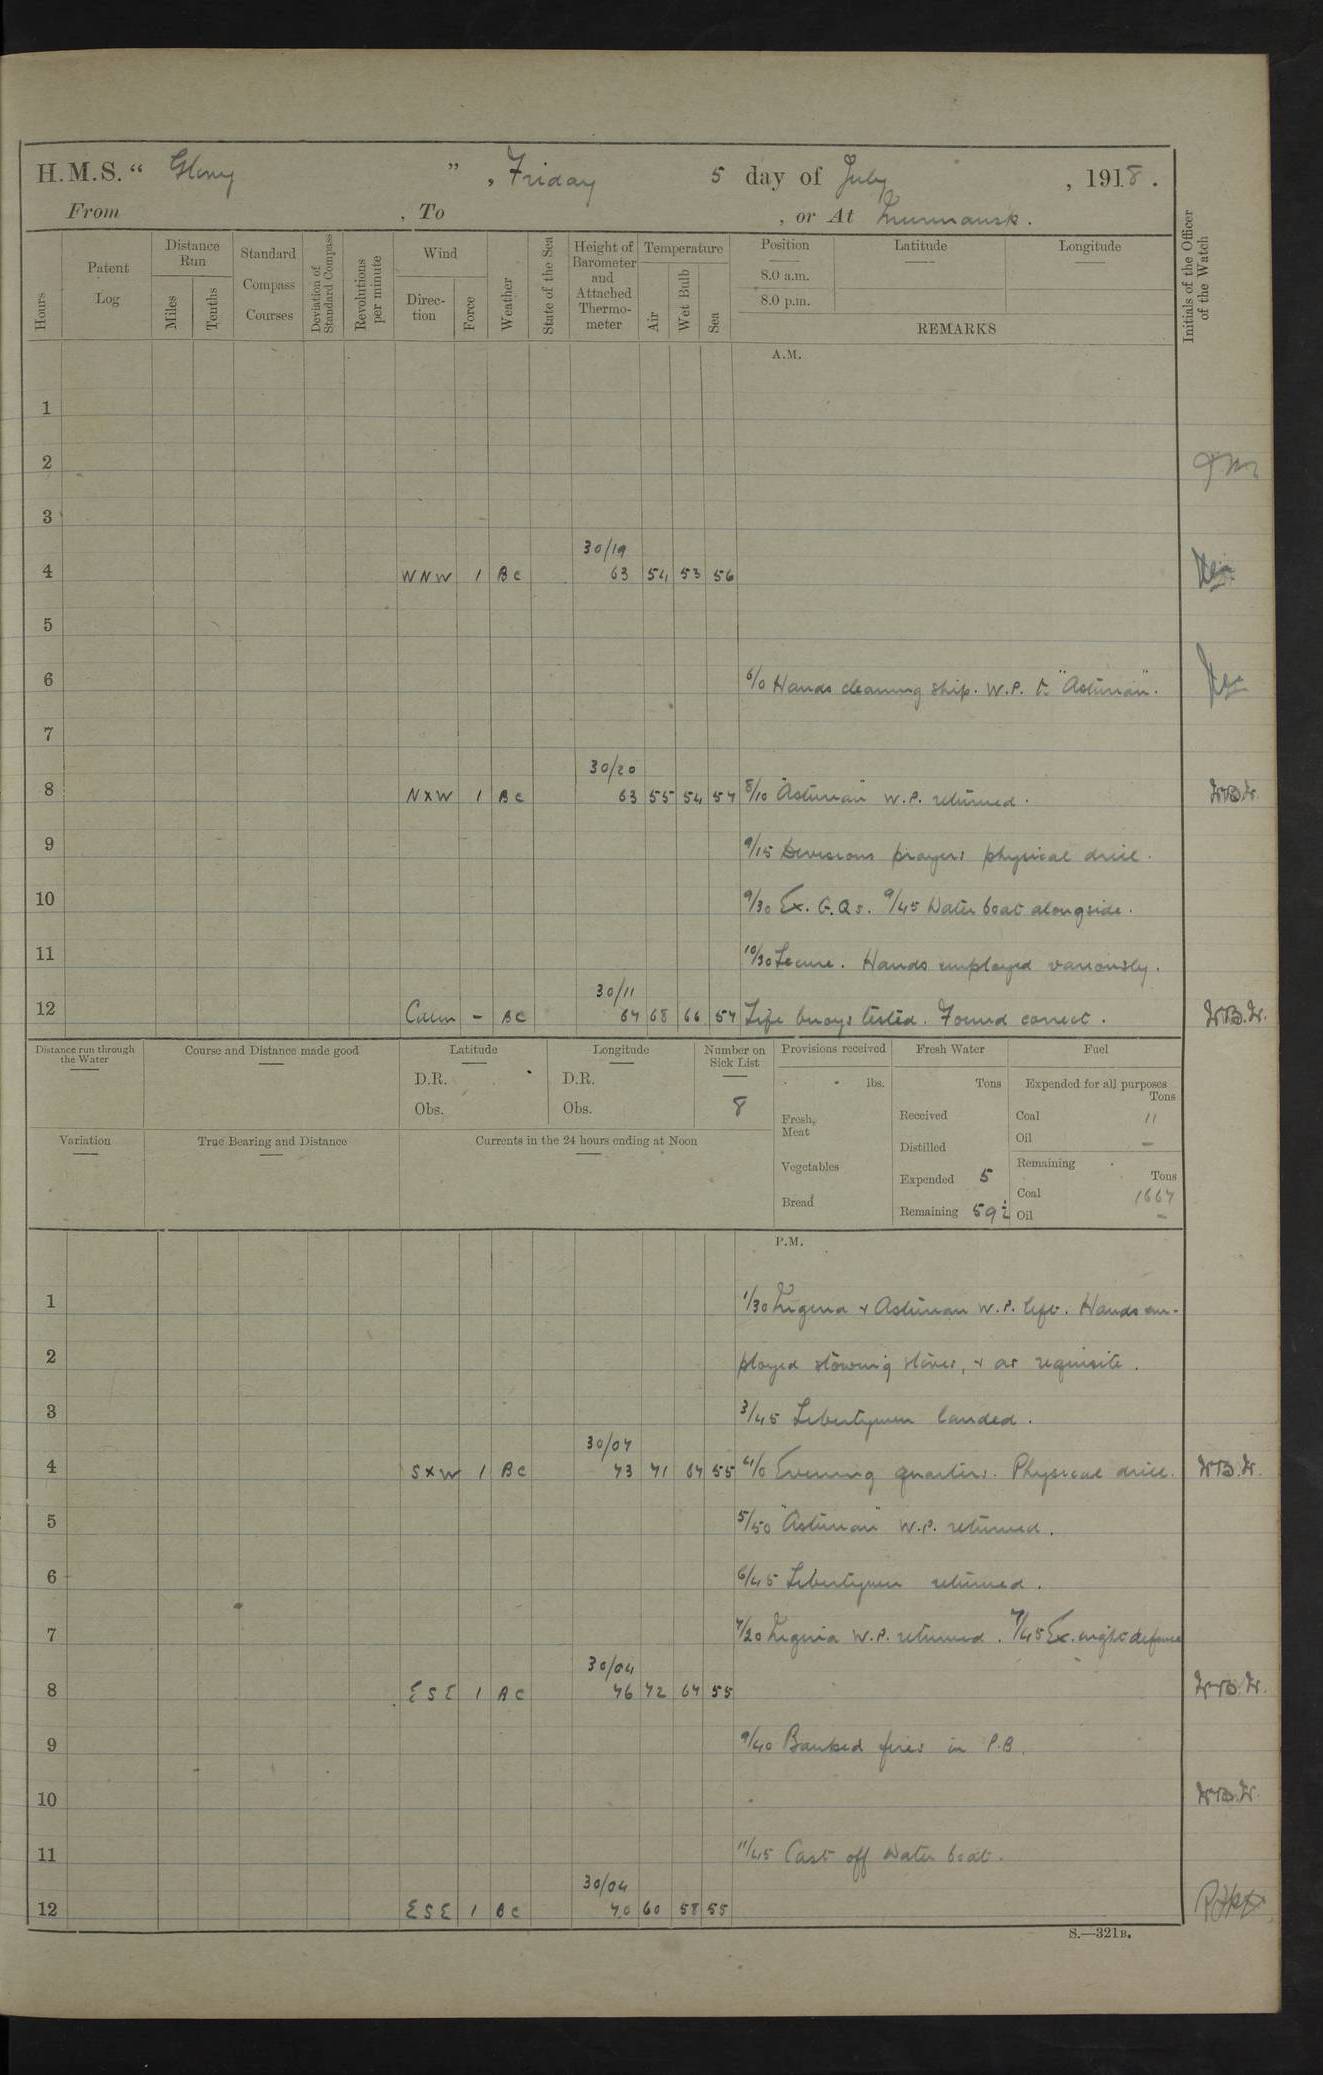 H.M.S. “ Glory ” , Friday 5 day of July , 1918 .
From , To , or At Murmansk .
Hours Patent Log Distance Run Miles Tenths Standard Compass Courses Deviation of Standard Compass Revolutions per minute Wind Direc-tion Force Weather State of the Sea Height of Barometer and Attached Thermo-meter Temperature Air Wet Bulb Sea Position 8.0 a.m. 8.0 p.m. Latitude Longitude REMARKS Initials of the Officer of the Watch
A.M.
1
2
3
30/19
4 WNW 1 BC 63 54 53 56
5
6 6/0 Hands cleaning ship. W.P. to "Asturian".
7
30/20
8 NXW 1 BC 63 55 54 57 8/10 "Asturian" W.P. returned. W.B.W.
9 9/15 Divisions prayers physical drill.
10 9/30 Ex. G.Qs. 9/45 Water boat alongside.
11 10/30 Secure. Hands employed variously.
30/11
12 Calm - BC 67 68 66 57 Life buoys tested. Found correct. W.B.W.
Distance run through the Water Course and Distance made good Latitude Longitude Number on Sick List Provisions received Fresh Water Fuel
D.R. D.R. lbs. Tons Expended for all purposes Tons
Obs. Obs. 8 Fresh Meat Received Coal 11
Variation True Bearing and Distance Currents in the 24 hours ending at Noon Distilled Oil —
Vegetables Expended 5 Remaining Tons
Coal 1667
Bread Remaining 592 Oil —
P.M.
1 1/30 & Asturian W.P. left. Hands em-
2 ployed stowing stores, & as requisite.
3 3/45 Libertymen landed.
30/07
4 SXW 1 BC 73 71 67 55 4/0 Evening quarters. Physical drill. W.B.W.
5 5/50 "Asturian" W.P. returned.
6 6/45 Libertymen returned.
7 7/20 W.P. returned. 7/45 Ex. night defence
30/04
8 ESE 1 BC 76 72 67 55 W.B.W.
9 9/40 Banked fires in P.B.
10 W.B.W.
11 11/45 Cast off Water boat.
30/04
12 ESE 1 BC 70 60 58 55
S.—321B.